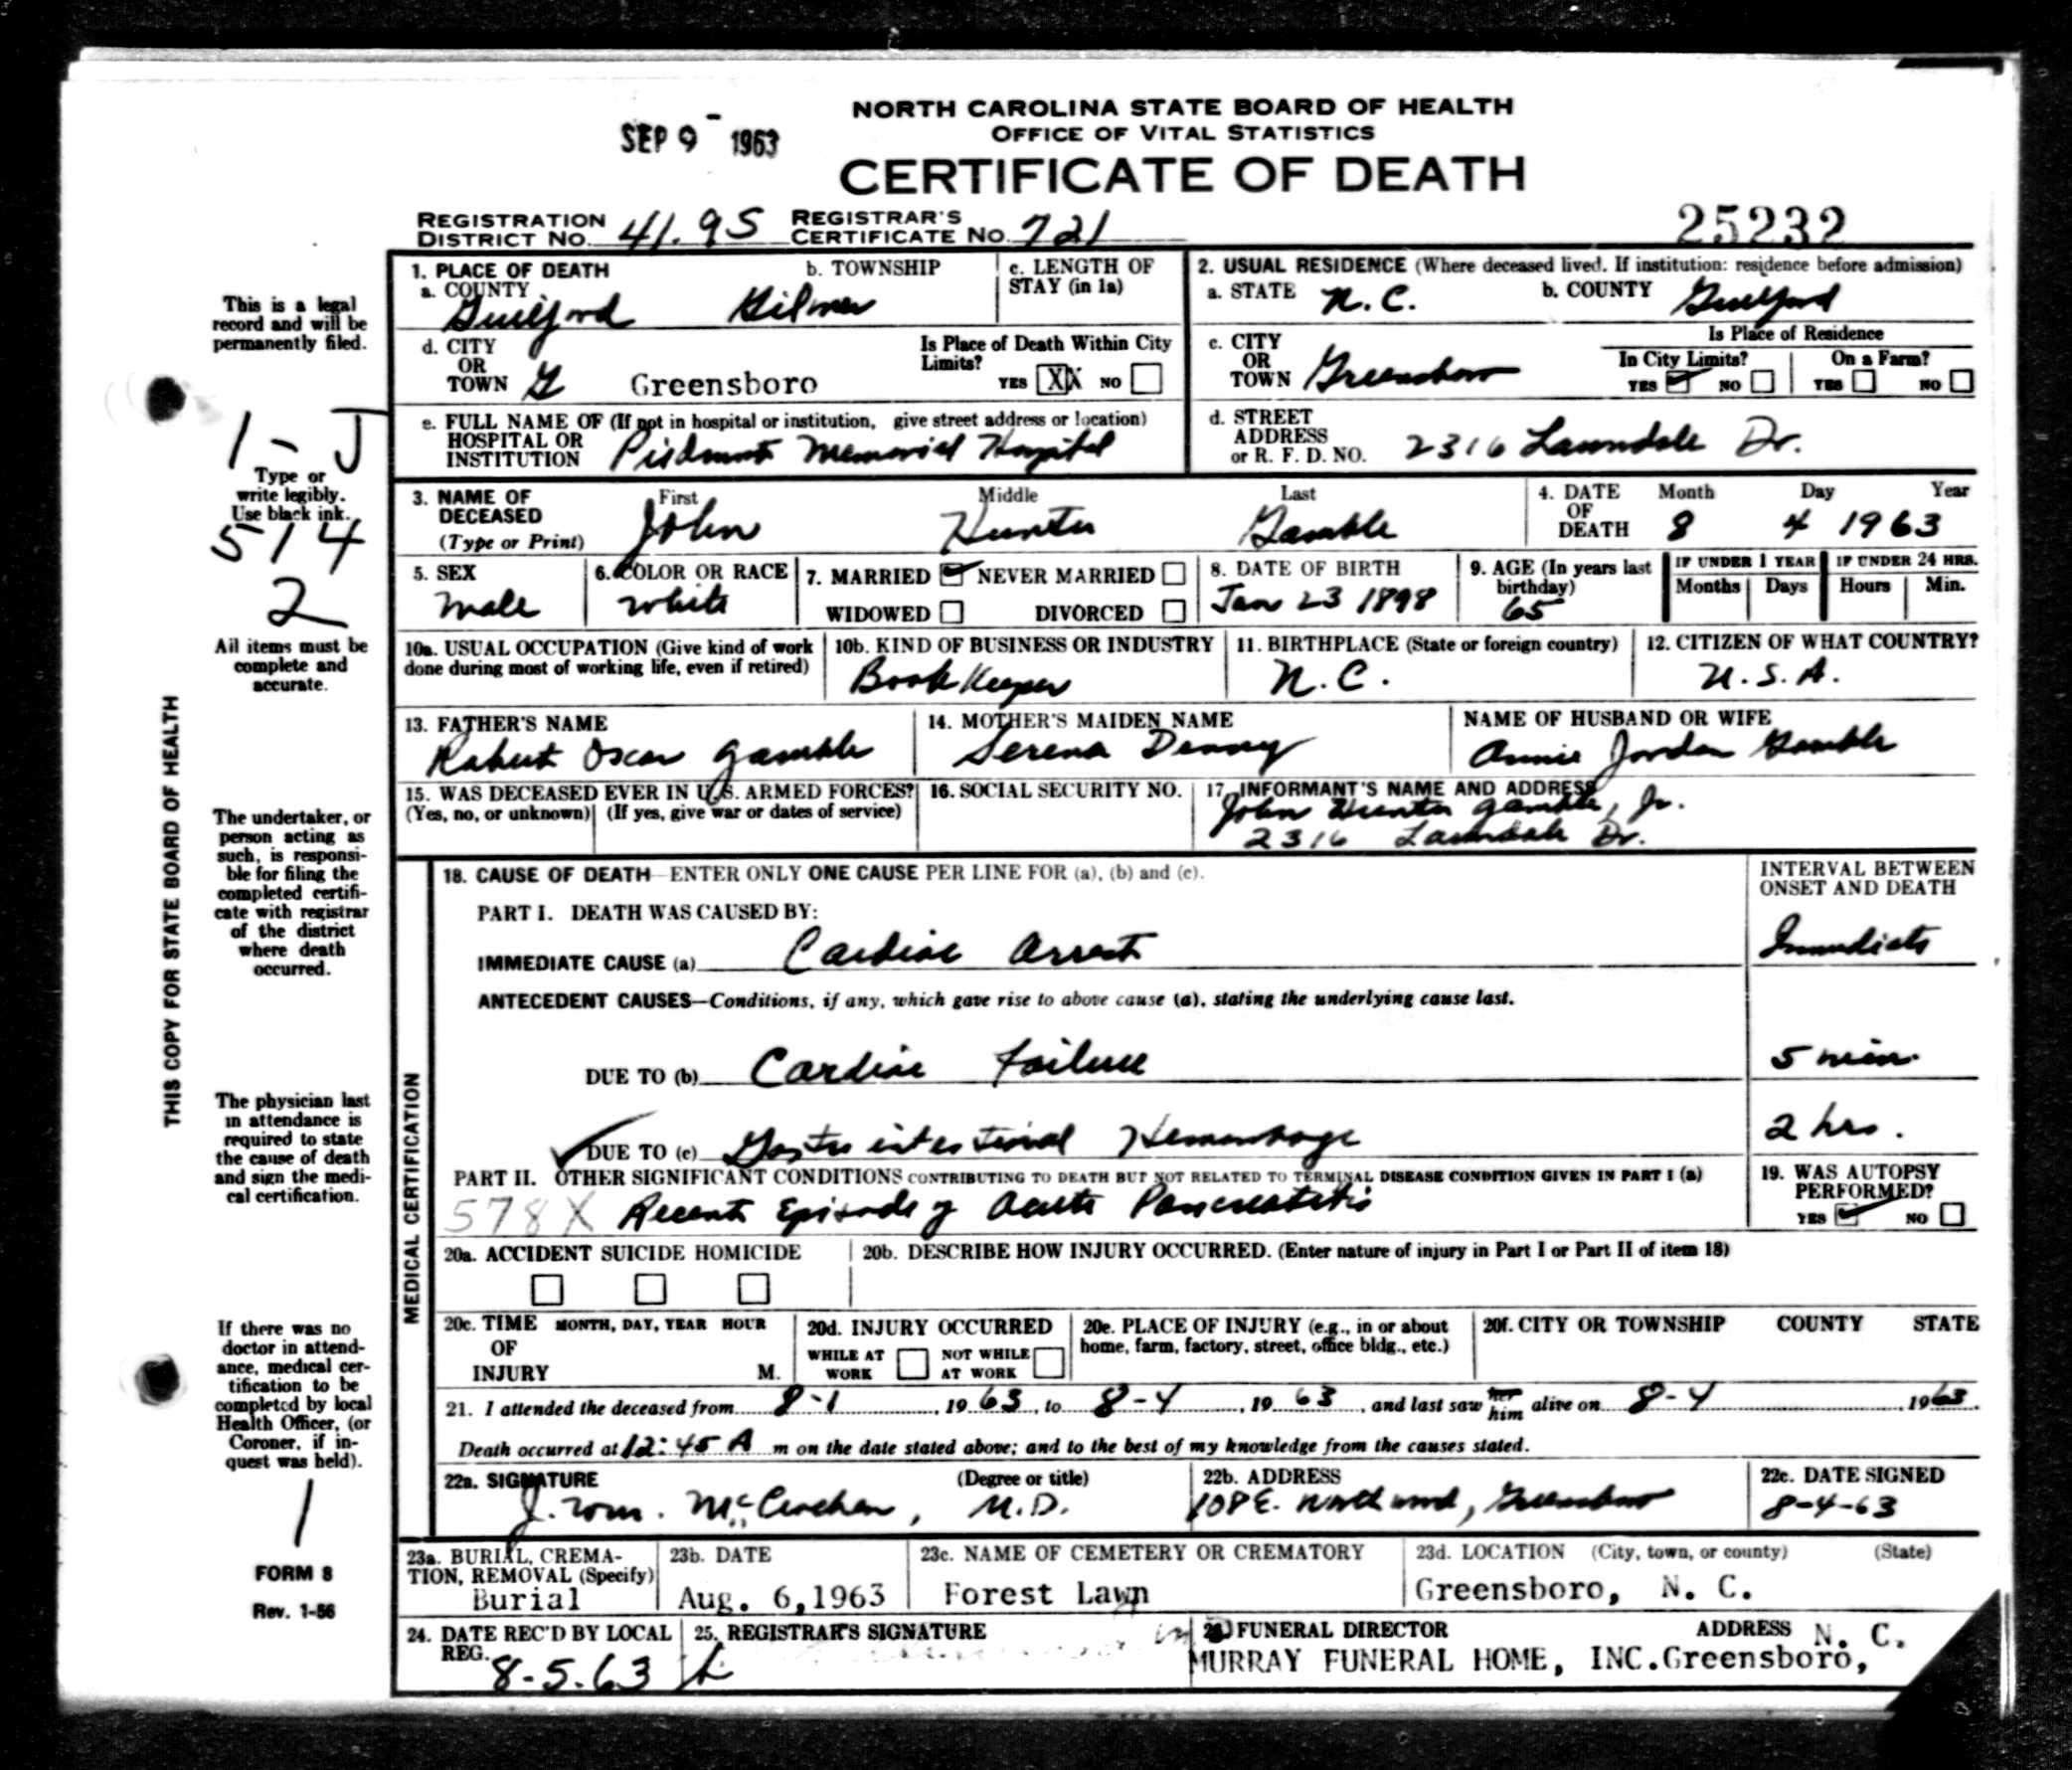 SEP 9 - 1963
NORTH CAROLINA STATE BOARD OF HEALTH
OFFICE OF VITAL STATISTICS
CERTIFICATE OF DEATH
REGISTRATION DISTRICT No. 41.95 REGISTRAR'S CERTIFICATE No. 721
25232
1. PLACE OF DEATH
a. COUNTY Guilford
b. TOWNSHIP Gilmer
c. LENGTH OF STAY (in 1a)
2. USUAL RESIDENCE (Where deceased lived. If institution: residence before admission)
a. STATE N.C.
b. COUNTY Guilford
d. CITY OR TOWN G Greensboro
Is Place of Death Within City Limits? YES XX NO
c. CITY OR TOWN Greensboro
Is Place of Residence
In City Limits? YES NO
On a Farm? YES NO
e. FULL NAME OF (If not in hospital or institution, give street address or location)
HOSPITAL OR INSTITUTION Piedmont Memorial Hospital
d. STREET ADDRESS or R. F. D. NO. 2316 Lawndale Dr.
3. NAME OF DECEASED (Type or Print)
First John
Middle Hunter
Last Gamble
4. DATE OF DEATH Month 8 Day 4 Year 1963
5. SEX male
6. COLOR OR RACE white
7. MARRIED NEVER MARRIED
WIDOWED DIVORCED
8. DATE OF BIRTH Jan 23 1898
9. AGE (In years last birthday) 65
IF UNDER 1 YEAR Months Days
IF UNDER 24 HRS. Hours Min.
10a. USUAL OCCUPATION (Give kind of work done during most of working life, even if retired)
10b. KIND OF BUSINESS OR INDUSTRY
Book Keeper
11. BIRTHPLACE (State or foreign country)
N.C.
12. CITIZEN OF WHAT COUNTRY?
U.S.A.
13. FATHER'S NAME
Robert Oscar Gamble
14. MOTHER'S MAIDEN NAME
Serena Denny
NAME OF HUSBAND OR WIFE
Annie Jordan Gamble
15. WAS DECEASED EVER IN U.S. ARMED FORCES?
(Yes, no, or unknown) (If yes, give war or dates of service)
16. SOCIAL SECURITY NO.
17. INFORMANT'S NAME AND ADDRESS
John Hunter Gamble, Jr.
2316 Lawndale Dr.
MEDICAL CERTIFICATION
18. CAUSE OF DEATH—ENTER ONLY ONE CAUSE PER LINE FOR (a), (b) and (c).
INTERVAL BETWEEN ONSET AND DEATH
PART I. DEATH WAS CAUSED BY:
IMMEDIATE CAUSE (a) Cardiac Arrest Immediate
ANTECEDENT CAUSES—Conditions, if any, which gave rise to above cause (a), stating the underlying cause last.
DUE TO (b) Cardiac Failure 5 min.
DUE TO (c) Gastrointestional Hemorrhage 2 hrs.
PART II. OTHER SIGNIFICANT CONDITIONS CONTRIBUTING TO DEATH BUT NOT RELATED TO TERMINAL DISEASE CONDITION GIVEN IN PART I (a)
578X Recent Episode of Acute Pancreatitis
19. WAS AUTOPSY PERFORMED?
YES NO
20a. ACCIDENT SUICIDE HOMICIDE
20b. DESCRIBE HOW INJURY OCCURRED. (Enter nature of injury in Part I or Part II of item 18)
20c. TIME OF INJURY MONTH, DAY, YEAR HOUR M.
20d. INJURY OCCURRED
WHILE AT WORK NOT WHILE AT WORK
20e. PLACE OF INJURY (e.g., in or about home, farm, factory, street, office bldg., etc.)
20f. CITY OR TOWNSHIP COUNTY STATE
21. I attended the deceased from 8-1, 1963, to 8-4, 1963, and last saw her him alive on 8-4 1963.
Death occurred at 12:45 A m on the date stated above; and to the best of my knowledge from the causes stated.
22a. SIGNATURE (Degree or title)
J. Wm. M.D.
22b. ADDRESS
108 E. Northwood, Greensboro
22c. DATE SIGNED
8-4-63
23a. BURIAL, CREMATION, REMOVAL (Specify)
Burial
23b. DATE
Aug. 6,1963
23c. NAME OF CEMETERY OR CREMATORY
Forest Lawn
23d. LOCATION (City, town, or county) (State)
Greensboro, N. C.
24. DATE REC'D BY LOCAL REG. 8-5.63
25. REGISTRAR'S SIGNATURE
26. FUNERAL DIRECTOR ADDRESS
MURRAY FUNERAL HOME, INC.Greensboro, N. C.
This is a legal
record and will be
permanently filed.
1-J
Type or
write legibly.
Use black ink.
514
2
All items must be
complete and
accurate.
THIS COPY FOR STATE BOARD OF HEALTH
The undertaker, or
person acting as
such, is responsi-
ble for filing the
completed certifi-
cate with registrar
of the district
where death
occurred.
The physician last
in attendance is
required to state
the cause of death
and sign the medi-
cal certification.
If there was no
doctor in attend-
ance, medical cer-
tification to be
completed by local
Health Officer, (or
Coroner, if in-
quest was held).
1
FORM 8
Rev. 1-56